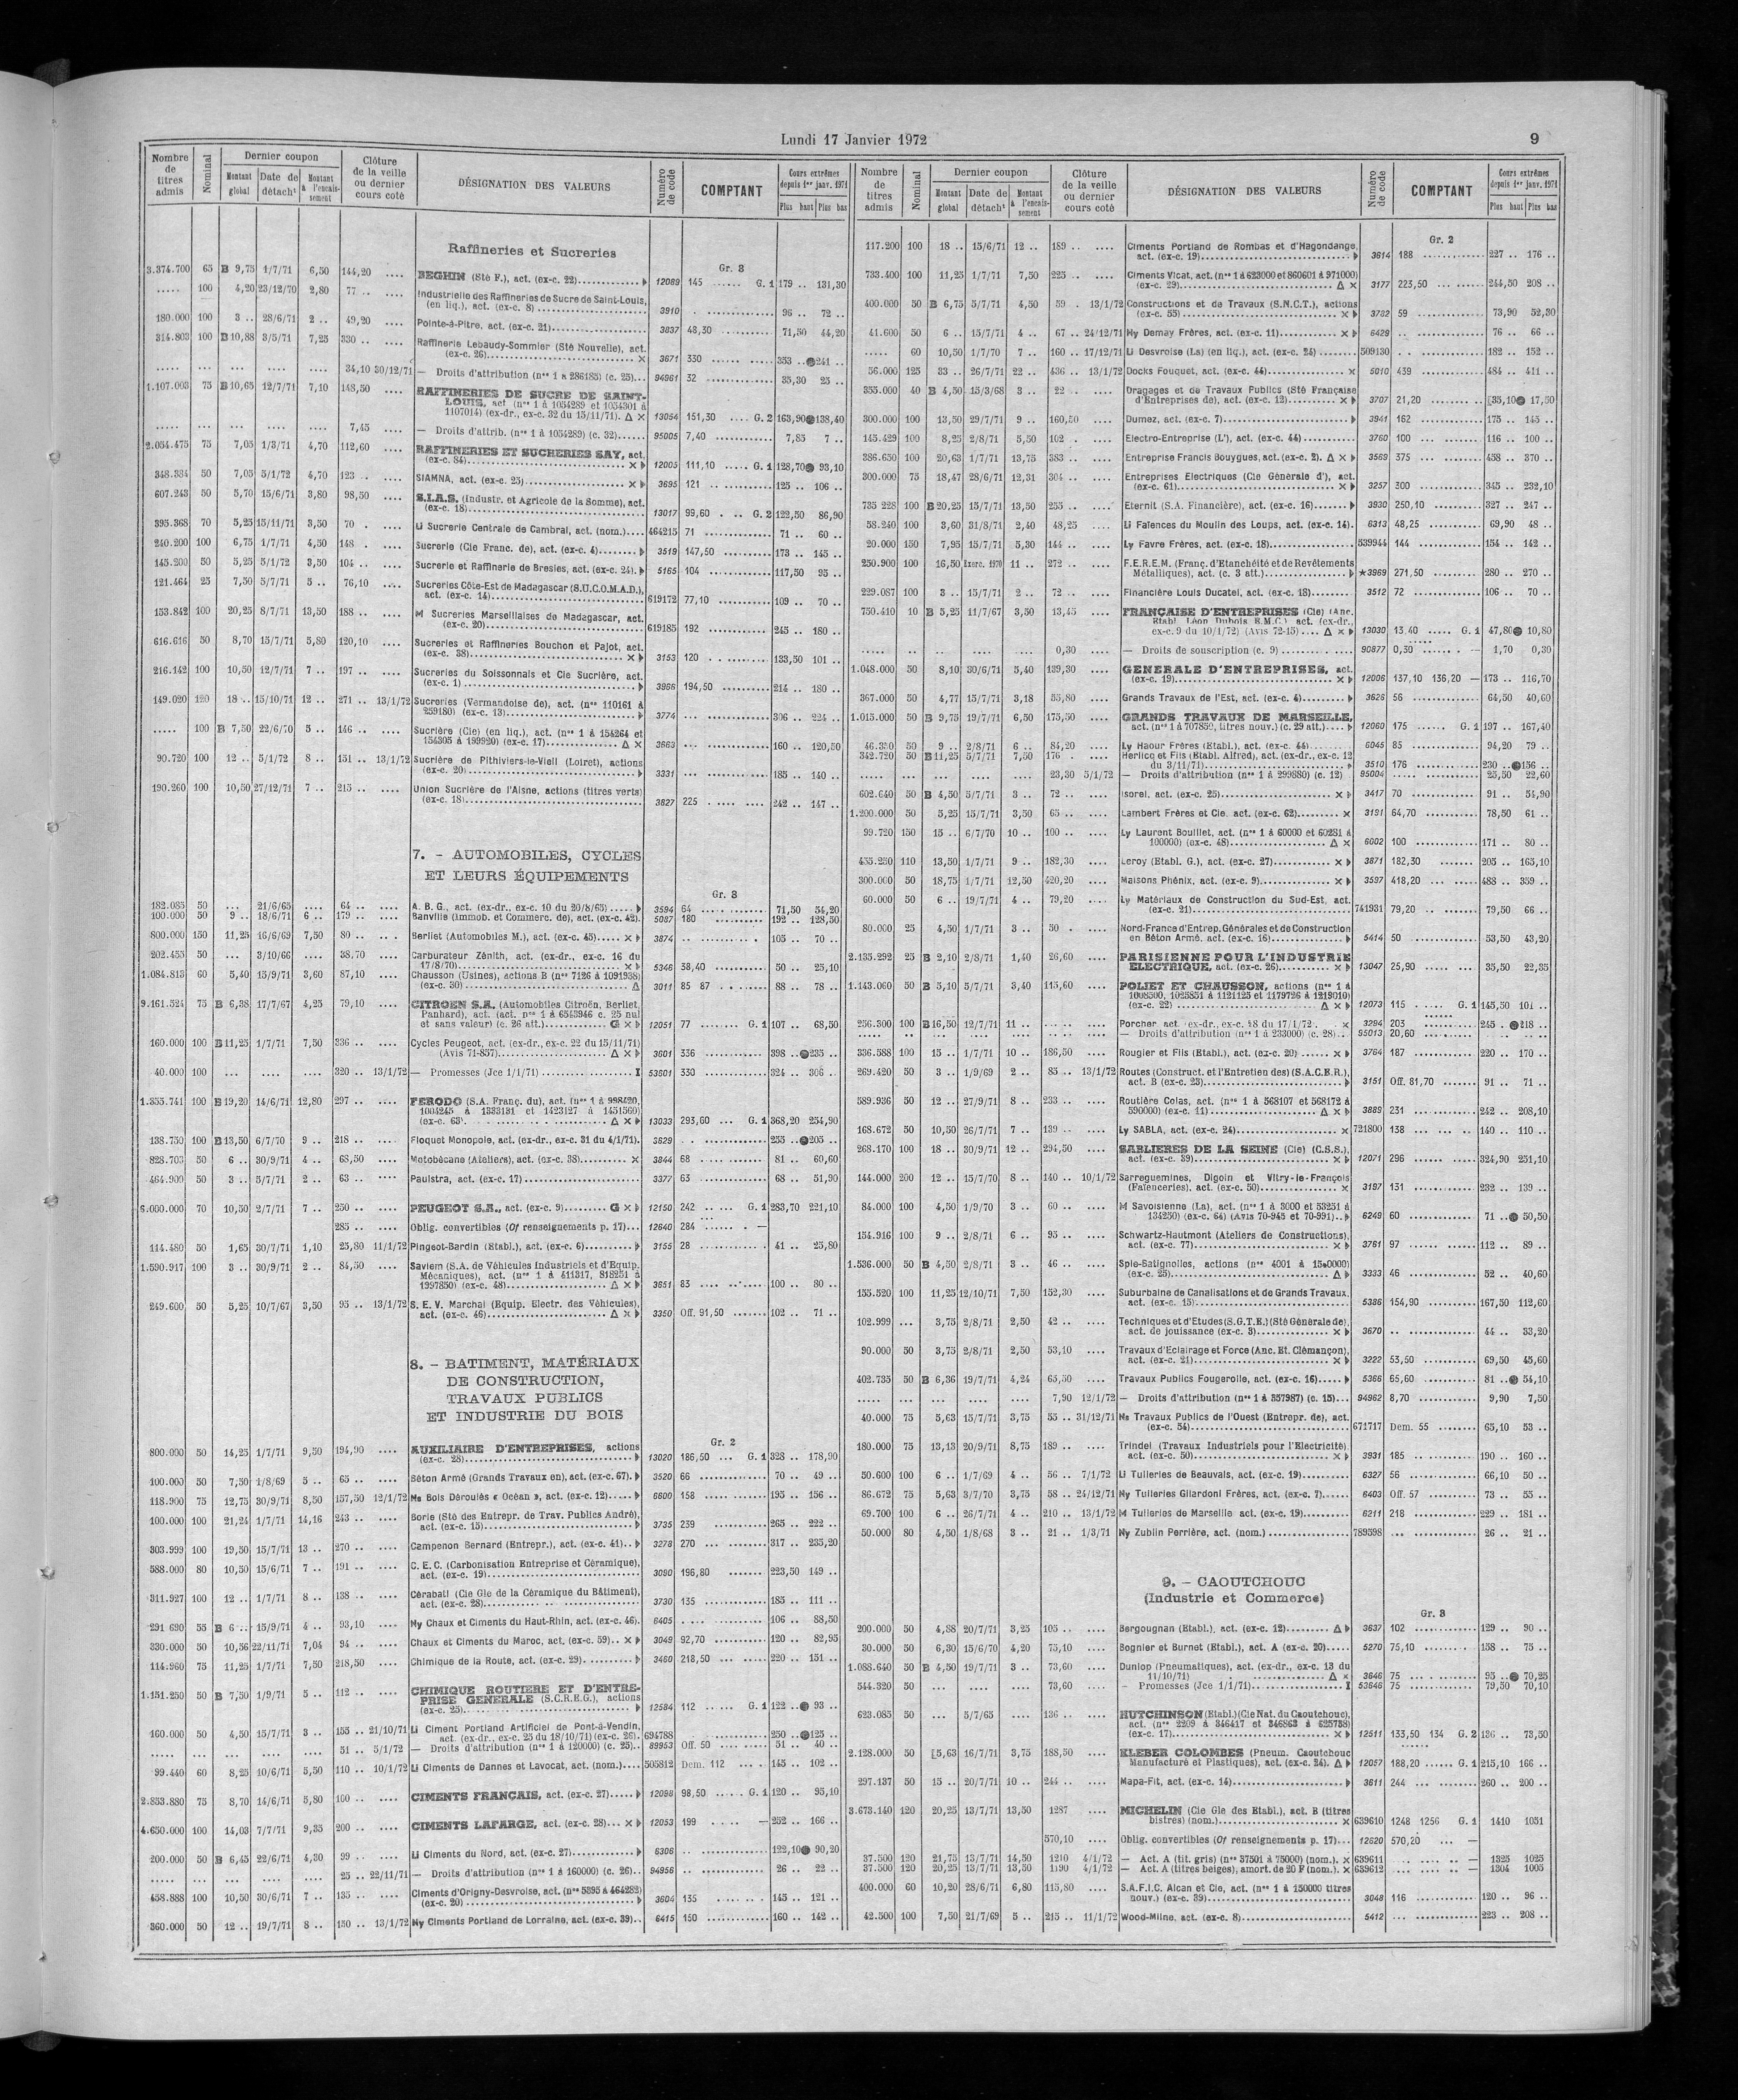 Lundi 17 Janvier 1972
9
Nombre de titres admis | Nominal | Dernier coupon | Montant global | Date de détach^t | Montant à l'encaissement | Clôture de la veille ou dernier cours coté | DÉSIGNATION DES VALEURS | Numéro de code | COMPTANT | Cours extrêmes depuis 1er janv. 1971 | Plus haut | Plus bas
Raffineries et Sucreries
Gr. 3
3.374.700 65 B 9,75 1/7/71 6,50 144,20 .... BEGHIN (Sté F.), act. (ex-c. 22) 12089 145 ...... G. 1 179 .. 131,30
..... 100 4,20 23/12/70 2,80 77 .. .... Industrielle des Raffineries de Sucre de Saint-Louis,
(en liq.), act. (ex-c. 8) 3910 96 .. 72 ..
180.000 100 3 .. 28/6/71 2 .. 49,20 .... Pointe-à-Pitre, act. (ex-c. 21) 3837 48,30 71,50 44,20
314.803 100 B 10,88 3/5/71 7,25 330 .. .... Raffinerie Lebaudy-Sommier (Sté Nouvelle), act.
(ex-c. 26) × 3671 330 353 .. ●241 ..
..... ... .... .... .... 34,10 30/12/71 — Droits d'attribution (nos 1 à 286185) (c. 25)... 94961 32 35,30 25 ..
1.107.003 75 B 10,65 12/7/71 7,10 148,50 .... RAFFINERIES DE SUCRE DE SAINT-
LOUIS, act (nos 1 à 1054289 et 1054301 à
1107014) (ex-dr., ex-c. 32 du 15/11/71). Δ × 13054 151,30 .... G. 2 163,90●138,40
..... ... .... .... .... 7,45 .... — Droits d'attrib. (nos 1 à 1054289) (c. 32)...... 95005 7,40 7,85 7 ..
2.054.475 75 7,05 1/3/71 4,70 112,60 .... RAFFINERIES ET SUCRERIES SAY, act.
(ex-c. 84) × 12005 111,10 ..... G. 1 128,70● 93,10
348.384 50 7,05 5/1/72 4,70 123 .. .... SIAMNA, act. (ex-c. 25) × 3695 121 125 .. 106 ..
607.243 50 5,70 15/6/71 3,80 98,50 .... S.I.A.S. (Industr. et Agricole de la Somme), act.
(ex-c. 18) 13017 99,60 G. 2 122,50 86,90
395.368 70 5,25 15/11/71 3,50 70 . .... Li Sucrerie Centrale de Cambrai, act. (nom.).... 464215 71 71 .. 60 ..
240.200 100 6,75 1/7/71 4,50 148 . .... Sucrerie (Cie Franc. de), act. (ex-c. 4) 3519 147,50 173 .. 145 ..
145.200 50 5,25 5/1/72 3,50 104 .. .... Sucrerie et Raffinerie de Bresles, act. (ex-c. 24). 5165 104 117,50 95 ..
121.464 25 7,50 5/7/71 5 .. 76,10 .... Sucreries Côte-Est de Madagascar (S.U.C.O.M.A.D.),
act. (ex-c. 14) 619172 77,10 109 .. 70 ..
153.842 100 20,25 8/7/71 13,50 188 .. .... M Sucreries Marseillaises de Madagascar, act.
(ex-c. 20) 619185 192 245 .. 180 ..
616.616 50 8,70 15/7/71 5,80 120,10 .... Sucreries et Raffineries Bouchon et Pajot, act.
(ex-c. 38) × 3153 120 133,50 101 ..
216.142 100 10,50 12/7/71 7 .. 197 .. .... Sucreries du Soissonnais et Cie Sucrière, act.
(ex-c. 1) 3966 194,50 214 .. 180 ..
149.020 120 18 .. 15/10/71 12 .. 271 .. 13/1/72 Sucreries (Vermandoise de), act. (nos 110161 à
259180) (ex-c. 13) 3774 306 .. 224 ..
..... 100 B 7,50 22/6/70 5 .. 146 .. .... Sucrière (Cie) (en liq.), act. (nos 1 à 154264 et
154305 à 199920) (ex-c. 17) Δ × 3663 160 .. 120,50
90.720 100 12 .. 5/1/72 8 .. 151 .. 13/1/72 Sucrière de Pithiviers-le-Vieil (Loiret), actions
(ex-c. 20) 3331 185 .. 140 ..
190.260 100 10,50 27/12/71 7 .. 215 .. .... Union Sucrière de l'Aisne, actions (titres verts)
(ex-c. 18) 3827 225 242 .. 147 ..
7. - AUTOMOBILES, CYCLES
ET LEURS ÉQUIPEMENTS
Gr. 3
182.085 50 ... 21/6/65 .... 64 .. .... A. B. G., act. (ex-dr., ex-c. 10 du 20/8/65) 3594 64 71,50 54,20
100.000 50 9 .. 18/6/71 6 .. 179 .. .... Banville (Immob. et Commerc. de), act. (ex-c. 42). 5037 180 192 .. 128,50
800.000 150 11,25 16/6/69 7,50 80 .. .... Berliet (Automobiles M.), act. (ex-c. 45) × 3874 105 .. 70 ..
202.455 50 ... 3/10/66 .... 38,70 .... Carburateur Zénith, act. (ex-dr., ex-c. 16 du
17/8/70) × 5346 38,40 50 .. 25,10
1.084.813 60 5,40 15/9/71 3,60 87,10 .... Chausson (Usines), actions B (nos 7126 à 1091938)
(ex-c. 30) Δ 3011 85 87 88 .. 78 ..
9.161.524 75 B 6,38 17/7/67 4,25 79,10 .... CITROEN S.A. (Automobiles Citroën, Berliet,
Panhard), act. (act. nos 1 à 6543946 c. 25 nul
et sans valeur) (c. 26 att.) G × 12051 77 G. 1 107 .. 68,50
160.000 100 B 11,25 1/7/71 7,50 336 .. .... Cycles Peugeot, act. (ex-dr., ex-c. 22 du 15/11/71)
(Avis 71-857) Δ × 3601 336 398 .. ●235 ..
40.000 100 ... .... .... 320 .. 13/1/72 — Promesses (Jce 1/1/71) I 53601 330 324 .. 306 ..
1.355.741 100 B 19,20 14/6/71 12,80 297 .. .... FERODO (S.A. Franç. du), act. (nos 1 à 998420,
1004245 à 1383181 et 1423127 à 1451560)
(ex-c. 63) Δ × 13033 293,60 ... G. 1 368,20 254,90
138.750 100 B 13,50 6/7/70 9 .. 218 .. .... Floquet Monopole, act. (ex-dr., ex-c. 31 du 4/1/71). 3829 255 .. ●205 ..
828.703 50 6 .. 30/9/71 4 .. 68,50 .... Motobécane (Ateliers), act. (ex-c. 38) × 3844 68 81 .. 60,60
464.900 50 3 .. 5/7/71 2 .. 63 .. .... Paulstra, act. (ex-c. 17) 3377 63 68 .. 51,90
6.000.000 70 10,50 2/7/71 7 .. 250 .. .... PEUGEOT S.A., act. (ex-c. 9) G × 12150 242 G. 1 283,70 221,10
285 .. .... Oblig. convertibles (Of renseignements p. 17)... 12640 284 —
114.480 50 1,65 30/7/71 1,10 25,80 11/1/72 Pingeot-Bardin (Etabl.), act. (ex-c. 6) 3155 28 41 .. 25,80
1.590.917 100 3 .. 30/9/71 2 .. 84,50 .... Saviem (S.A. de Véhicules Industriels et d'Equip.
Mécaniques), act. (nos 1 à 411317, 818251 à
1997850) (ex-c. 48) Δ × 3651 83 100 .. 80 ..
249.600 50 5,25 10/7/67 3,50 95 .. 13/1/72 S. E. V. Marchal (Equip. Electr. des Véhicules),
act. (ex-c. 46) Δ × 3350 Off. 91,50 102 .. 71 ..
8. - BATIMENT, MATÉRIAUX
DE CONSTRUCTION,
TRAVAUX PUBLICS
ET INDUSTRIE DU BOIS
Gr. 2
800.000 50 14,25 1/7/71 9,50 194,90 .... AUXILIAIRE D'ENTREPRISES, actions
(ex-c. 28) 13020 186,50 ... G. 1 328 .. 178,90
100.000 50 7,50 1/8/69 5 .. 65 .. .... Béton Armé (Grands Travaux en), act. (ex-c. 67). 3520 66 70 .. 49 ..
118.900 75 12,75 30/9/71 8,50 157,50 12/1/72 Ns Bois Déroulés « Océan », act. (ex-c. 12) 6600 158 195 .. 156 ..
100.000 100 21,24 1/7/71 14,16 243 .. .... Borie (Sté des Entrepr. de Trav. Publics André),
act. (ex-c. 15) 3735 239 265 .. 222 ..
303.999 100 19,50 15/7/71 13 .. 270 .. .... Campenon Bernard (Entrepr.), act. (ex-c. 41).. 3278 270 317 .. 235,20
588.000 80 10,50 15/6/71 7 .. 191 .. .... C. E. C. (Carbonisation Entreprise et Céramique),
act. (ex-c. 19) 3090 196,80 223,50 149 ..
311.927 100 12 .. 1/7/71 8 .. 138 .. .... Cérabati (Cie Gle de la Céramique du Bâtiment),
act. (ex-c. 28) 3730 135 185 .. 111 ..
291 690 55 B 6 .. 15/9/71 4 .. 93,10 .... Ny Chaux et Ciments du Haut-Rhin, act. (ex-c. 46). 6405 106 .. 88,50
330.000 50 10,56 22/11/71 7,04 94 .. .... Chaux et Ciments du Maroc, act. (ex-c. 59).. × 3049 92,70 120 .. 82,95
114.960 75 11,25 1/7/71 7,50 218,50 .... Chimique de la Route, act. (ex-c. 29) 3460 218,50 220 .. 151 ..
1.151.250 50 B 7,50 1/9/71 5 .. 112 .. .... CHIMIQUE ROUTIERE ET D'ENTRE-
PRISE GENERALE (S.C.R.E.G.), actions
(ex-c. 25) 12584 112 G. 1 122 .. ● 93 ..
160.000 50 4,50 15/7/71 3 .. 155 .. 21/10/71 Li Ciment Portland Artificiel de Pont-à-Vendin,
act. (ex-dr., ex-c. 25 du 18/10/71) (ex-c. 26). 694788 250 .. ●125 ..
..... ... ... .... .... 51 .. 5/1/72 — Droits d'attribution (nos 1 à 120000) (c. 25).. 89953 Off. 50 51 .. 40 ..
99.440 60 8,25 10/6/71 5,50 110 .. 10/1/72 Li Ciments de Dannes et Lavocat, act. (nom.).... 505812 Dem. 112 145 .. 102 ..
2.853.880 75 8,70 14/6/71 5,80 100 .. .... CIMENTS FRANÇAIS, act. (ex-c. 27) 12098 98,50 G. 1 120 .. 95,10
4.650.000 100 14,03 7/7/71 9,35 200 .. .... CIMENTS LAFARGE, act. (ex-c. 28)... × 12053 199 — 252 .. 166 ..
200.000 50 B 6,45 22/6/71 4,30 99 .. .... Li Ciments du Nord, act. (ex-c. 27) 6306 122,10● 90,20
..... ... .... .... .... 25 .. 22/11/71 — Droits d'attribution (nos 1 à 160000) (c. 26).. 94956 26 .. 22 ..
458.888 100 10,50 30/6/71 7 .. 135 .. .... Ciments d'Origny-Desvroise, act. (nos 5395 à 464282)
(ex-c. 20) 3604 135 145 .. 121 ..
360.000 50 12 .. 19/7/71 8 .. 150 .. 13/1/72 Ny Ciments Portland de Lorraine, act. (ex-c. 39).. 6415 150 160 .. 142 ..
Nombre de titres admis | Nominal | Dernier coupon | Montant global | Date de détach^t | Montant à l'encaissement | Clôture de la veille ou dernier cours coté | DÉSIGNATION DES VALEURS | Numéro de code | COMPTANT | Cours extrêmes depuis 1er janv. 1971 | Plus haut | Plus bas
Gr. 2
117.200 100 18 .. 15/6/71 12 .. 189 .. .... Ciments Portland de Rombas et d'Hagondange,
act. (ex-c. 19) 3614 188 227 .. 176 ..
733.400 100 11,25 1/7/71 7,50 225 .. .... Ciments Vicat, act. (nos 1 à 623000 et 860601 à 971000)
(ex-c. 29) Δ × 3177 223,50 244,50 208 ..
400.000 50 B 6,75 5/7/71 4,50 59 . 13/1/72 Constructions et de Travaux (S.N.C.T.), actions
(ex-c. 55) × 3732 59 73,90 52,30
41.600 50 6 .. 15/7/71 4 .. 67 .. 24/12/71 Ny Demay Frères, act. (ex-c. 11) × 6429 76 .. 66 ..
..... 60 10,50 1/7/70 7 .. 160 .. 17/12/71 Li Desvroise (La) (en liq.), act. (ex-c. 24) 509130 182 .. 152 ..
56.000 125 33 .. 26/7/71 22 .. 436 .. 13/1/72 Docks Fouquet, act. (ex-c. 44) × 5010 439 484 .. 411 ..
355.000 40 B 4,50 15/3/68 3 .. 22 . .... Dragages et de Travaux Publics (Sté Française
d'Entreprises de), act. (ex-c. 12) × 3707 21,20 35,10● 17,50
300.000 100 13,50 29/7/71 9 .. 160,50 .... Dumez, act. (ex-c. 7) 3941 162 175 .. 145 ..
145.429 100 8,25 2/8/71 5,50 102 . .... Electro-Entreprise (L'), act. (ex-c. 44) 3760 100 116 .. 100 ..
386.650 100 20,63 1/7/71 13,75 383 .. .... Entreprise Francis Bouygues, act. (ex-c. 2). Δ × 3569 375 458 .. 370 ..
300.000 75 18,47 28/6/71 12,31 304 .. .... Entreprises Electriques (Cie Générale d'), act.
(ex-c. 61) × 3257 300 345 .. 232,10
735 228 100 B 20,25 15/7/71 13,50 255 .. .... Eternit (S.A. Financière), act. (ex-c. 16) 3930 250,10 327 .. 247 ..
58.240 100 3,60 31/8/71 2,40 48,25 .... Li Faïences du Moulin des Loups, act. (ex-c. 14). 6313 48,25 69,90 48 ..
20.000 150 7,95 15/7/71 5,30 144 .. .... Ly Favre Frères, act. (ex-c. 18) 539944 144 154 .. 142 ..
250.900 100 16,50 Exerc. 1970 11 .. 272 .. .... F.E.R.E.M. (Franç. d'Etanchéité et de Revêtements
Métalliques), act. (c. 3 att.) ★3969 271,50 280 .. 270 ..
229.087 100 3 .. 15/7/71 2 .. 72 .. .... Financière Louis Ducatel, act. (ex-c. 18) 3512 72 106 .. 70 ..
750.410 10 B 5,25 11/7/67 3,50 13,45 .... FRANÇAISE D'ENTREPRISES (Cie) (Anc.
Etabl. Léon Dubois E.M.C.) act. (ex-dr.,
ex-c. 9 du 10/1/72) (Avis 72-15) Δ × 13030 13,40 G. 1 47,80● 10,80
..... .. .... .... .... 0,30 .... — Droits de souscription (c. 9) 90877 0,30 — 1,70 0,30
1.048.000 50 8,10 30/6/71 5,40 139,30 .... GENERALE D'ENTREPRISES, act.
(ex-c. 19) × 12006 137,10 136,20 — 173 .. 116,70
367.000 50 4,77 15/7/71 3,18 55,80 .... Grands Travaux de l'Est, act. (ex-c. 4) 3626 56 64,50 40,60
1.015.000 50 B 9,75 19/7/71 6,50 175,50 .... GRANDS TRAVAUX DE MARSEILLE,
act. (nos 1 à 707852, titres nouv.) (c. 29 att.) 12060 175 G. 1 197 .. 167,40
46.350 50 9 .. 2/8/71 6 .. 84,20 .... Ly Haour Frères (Etabl.), act. (ex-c. 44) 6045 85 94,20 79 ..
342.720 50 B 11,25 5/7/71 7,50 176 . .... Herlicq et Fils (Etabl. Alfred), act. (ex-dr., ex-c. 12
du 3/11/71) 3510 176 230 .. ●156 ..
..... ... .... .... .... 23,30 5/1/72 — Droits d'attribution (nos 1 à 299880) (c. 12) 95004 25,50 22,60
602.640 50 B 4,50 5/7/71 3 .. 72 .. .... Isorel, act. (ex-c. 25) × 3417 70 91 .. 54,90
1.200.000 50 5,25 15/7/71 3,50 65 .. .... Lambert Frères et Cie, act. (ex-c. 62) × 3191 64,70 78,50 61 ..
99.720 150 15 .. 6/7/70 10 .. 100 .. .... Ly Laurent Bouillet, act. (nos 1 à 60000 et 60281 à
100000) (ex-c. 48) Δ × 6002 100 171 .. 80 ..
455.250 110 13,50 1/7/71 9 .. 182,30 .... Leroy (Etabl. G.), act. (ex-c. 27) × 3871 182,30 205 .. 165,10
300.000 50 18,75 1/7/71 12,50 420,20 .... Maisons Phénix, act. (ex-c. 9) × 3597 418,20 488 .. 359 ..
60.000 50 6 .. 19/7/71 4 .. 79,20 .... Ly Matériaux de Construction du Sud-Est, act.
(ex-c. 21) 741931 79,20 79,50 66 ..
80.000 25 4,50 1/7/71 3 .. 50 . .... Nord-France d'Entrep. Générales et de Construction
en Béton Armé. act. (ex-c. 16) 5414 50 53,50 43,20
2.135.292 25 B 2,10 2/8/71 1,40 26,60 .... PARISIENNE POUR L'INDUSTRIE
ELECTRIQUE, act. (ex-c. 26) × 13047 25,90 35,50 22,35
1.143.060 50 B 5,10 5/7/71 3,40 115,60 .... POLIET ET CHAUSSON, actions (nos 1 à
1008500, 1025851 à 1121125 et 1179726 à 1219010)
(ex-c. 22) Δ × 12073 115 G. 1 145,50 101 ..
256.300 100 B 16,50 12/7/71 11 .. Porcher act. (ex-dr., ex-c. 18 du 17/1/72) × 3294 203 245 .. ●218 ..
..... .... — Droits d'attribution (nos 1 à 233000) (c. 28).. 95013 20,60
336.588 100 15 .. 1/7/71 10 .. 186,50 .... Rougier et Fils (Etabl.), act. (ex-c. 20) × 3764 187 220 .. 170 ..
269.420 50 3 .. 1/9/69 2 .. 85 .. 13/1/72 Routes (Construct. et l'Entretien des) (S.A.C.E.R.),
act. B (ex-c. 23) 3151 Off. 81,70 91 .. 71 ..
589.936 50 12 .. 27/9/71 8 .. 233 .. .... Routière Colas, act. (nos 1 à 568107 et 568172 à
590000) (ex-c. 11) Δ × 3889 231 242 .. 208,10
168.672 50 10,50 26/7/71 7 .. 139 .. .... Ly SABLA, act. (ex-c. 24) × 721800 138 140 .. 110 ..
268.170 100 18 .. 30/9/71 12 .. 294,50 .... SABLIERES DE LA SEINE (Cie) (C.S.S.),
act. (ex-c. 39) × 12071 296 324,90 251,10
144.000 200 12 .. 15/7/70 8 .. 140 .. 10/1/72 Sarreguemines, Digoin et Vitry-le-François
(Faïenceries), act. (ex-c. 50) × 3197 131 232 .. 139 ..
84.000 100 4,50 1/9/70 3 .. 60 .. .... M Savoisienne (La), act. (nos 1 à 3000 et 53251 à
134250) (ex-c. 64) (Avis 70-945 et 70-991).. 6249 60 71 .. ● 50,50
154.916 100 9 .. 2/8/71 6 .. 95 .. .... Schwartz-Hautmont (Ateliers de Constructions),
act. (ex-c. 77) × 3761 97 112 .. 89 ..
1.536.000 50 B 4,50 2/8/71 3 .. 46 .. .... Spie-Batignolles, actions (nos 4001 à 1540000)
(ex-c. 25) Δ 3333 46 52 .. 40,60
155.520 100 11,25 12/10/71 7,50 152,30 .... Suburbaine de Canalisations et de Grands Travaux,
act. (ex-c. 15) 5386 154,90 167,50 112,60
102.999 ... 3,75 2/8/71 2,50 42 .. .... Techniques et d'Etudes (S.G.T.E.) (Sté Générale de),
act. de jouissance (ex-c. 3) × 3670 44 .. 33,20
90.000 50 3,75 2/8/71 2,50 53,10 .... Travaux d'Eclairage et Force (Anc. Et. Clémançon),
act. (ex-c. 21) × 3222 53,50 69,50 45,60
402.735 50 B 6,36 19/7/71 4,24 65,50 .... Travaux Publics Fougerolle, act. (ex-c. 16) 5366 65,60 81 .. ● 54,10
..... ... .... .... .... 7,90 12/1/72 — Droits d'attribution (nos 1 à 357987) (c. 15)... 94962 8,70 9,90 7,50
40.000 75 5,63 15/7/71 3,75 55 .. 31/12/71 Ns Travaux Publics de l'Ouest (Entrepr. de), act.
(ex-c. 54) 671717 Dem. 55 65,10 53 ..
180.000 75 13,13 20/9/71 8,75 189 .. .... Trindel (Travaux Industriels pour l'Electricité)
act. (ex-c. 50) × 3931 185 190 .. 160 ..
50.600 100 6 .. 1/7/69 4 .. 56 .. 7/1/72 Li Tuileries de Beauvais, act. (ex-c. 19) 6327 56 66,10 50 ..
86.672 75 5,63 3/7/70 3,75 58 .. 24/12/71 Ny Tuileries Gilardoni Frères, act. (ex-c. 7) 6403 Off. 57 73 .. 55 ..
69.700 100 6 .. 26/7/71 4 .. 210 .. 13/1/72 M Tuileries de Marseille act. (ex-c. 19) 6211 218 229 .. 181 ..
50.000 80 4,50 1/8/68 3 .. 21 .. 1/3/71 Ny Zublin Perrière, act. (nom.) 789598 26 .. 21 ..
9. - CAOUTCHOUC
(Industrie et Commerce)
Gr. 3
200.000 50 4,88 20/7/71 3,25 105 .. .... Bergougnan (Etabl.), act. (ex-c. 12) Δ 3637 102 129 .. 90 ..
30.000 50 6,30 15/6/70 4,20 75,10 .... Bognier et Burnet (Etabl.), act. A (ex-c. 20) 5270 75,10 158 .. 75 ..
1.088.640 50 B 4,50 19/7/71 3 .. 73,60 .... Dunlop (Pneumatiques), act. (ex-dr., ex-c. 13 du
11/10/71) Δ × 3646 75 95 .. ● 70,25
544.320 50 ... .... .... 73,60 .... — Promesses (Jce 1/1/71) I 53646 75 79,50 70,10
623.085 50 ... 5/7/65 .... 136 .. .... HUTCHINSON (Etabl.) (Cie Nat. du Caoutchouc),
act. (nos 2209 à 346417 et 346863 à 625738)
(ex-c. 17) × 12511 133,50 134 G. 2 136 .. 73,50
2.128.000 50 5,63 16/7/71 3,75 188,50 .... KLEBER COLOMBES (Pneum. Caoutchouc
Manufacturé et Plastiques), act. (ex-c. 24). Δ 12057 188,20 G. 1 215,10 166 ..
297.137 50 15 .. 20/7/71 10 .. 244 .. .... Mapa-Fit, act. (ex-c. 14) 3611 244 260 .. 200 ..
3.673.140 120 20,25 13/7/71 13,50 1287 .... MICHELIN (Cie Gle des Etabl.), act. B (titres
bistres) (nom.) × 639610 1248 1256 G. 1 1410 1051
570,10 .... Oblig. convertibles (Of renseignements p. 17)... 12620 570,20 ... —
37.500 120 21,75 13/7/71 14,50 1210 4/1/72 — Act. A (tit. gris) (nos 37501 à 75000) (nom.). × 639611 — 1325 1025
37.500 120 20,25 13/7/71 13,50 1190 4/1/72 — Act. A (titres beiges), amort. de 20 F (nom.). × 639612 — 1304 1005
400.000 60 10,20 28/6/71 6,80 115,80 .... S.A.F.I.C. Alcan et Cie, act. (nos 1 à 150000 titres
nouv.) (ex-c. 39) 3048 116 120 .. 96 ..
42.500 100 7,50 21/7/69 5 .. 215 .. 11/1/72 Wood-Milne, act. (ex-c. 8) 5412 223 .. 208 ..